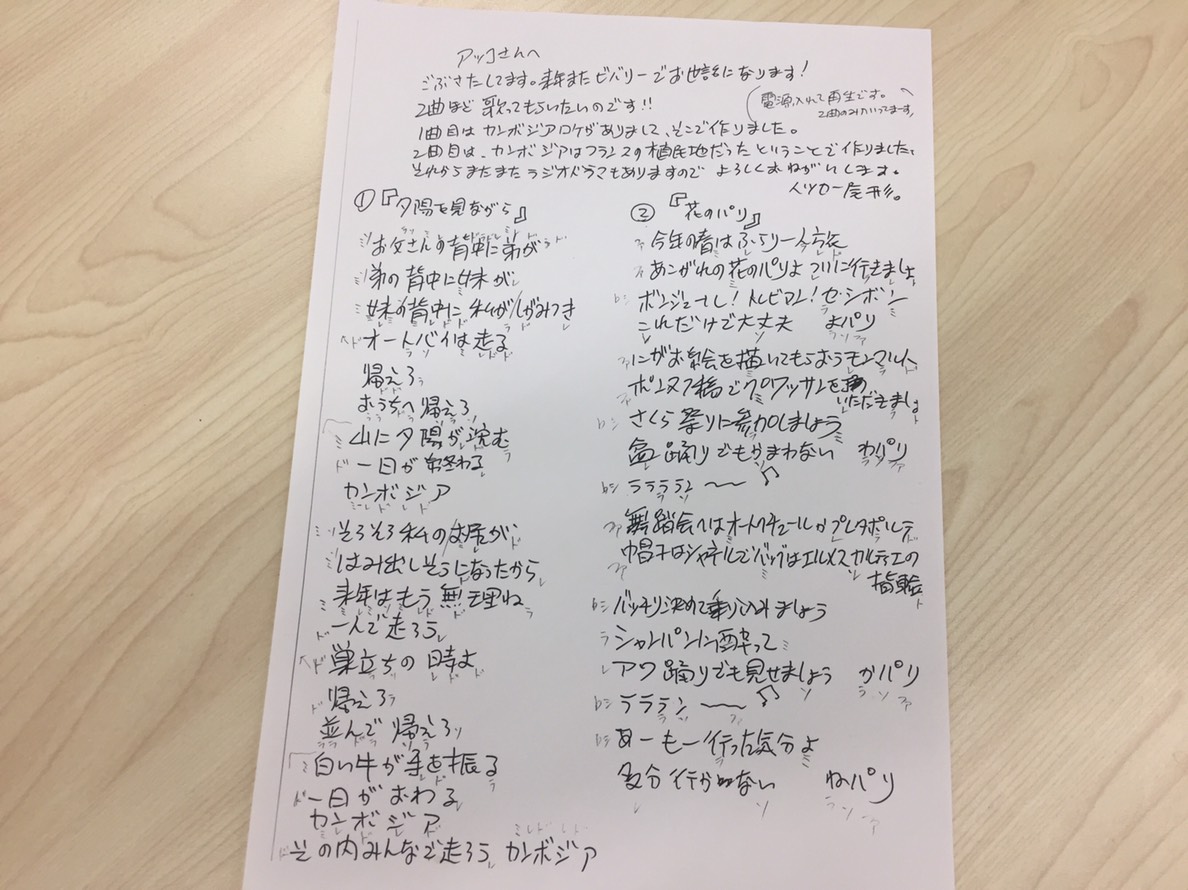 アッコさんへ
ごぶさたしてます。来年またビバリーでお世話になります！
2曲ほど歌ってもらいたいのです!!
電源入れて再生です。
2曲のみ入ってます。
1曲目はカンボジアロケがありまして、そこで作りました。
2曲目は、カンボジアはフランスの植民地だったということで作りました。
それからまたまたラジオドラマもありますので よろしくおねがいします。
イッセー尾形。
① 『夕陽を見ながら』
お父さんの背中に弟が
弟の背中に妹が
妹の背中に私がしがみつき
オートバイは走る
帰えろ
おうちへ帰えろ
山に夕陽が沈む
一日が終わる
カンボジア
そろそろ私のお尻が
はみ出しそうになったから
来年はもう無理ね
一人で走ろう
巣立ちの時よ
帰えろ
並んで帰えろ
白い牛が手を振る
一日がおわる
カンボジア
その内みんなで走ろう カンボジア
② 『花のパリ』
今年の春はふらり一人旅
あこがれの花のパリよ ついに行きましょ
ボンジュールし！トレビアン！セ・シボン
これだけで大丈夫 よパリ
にがお絵を描いてもらおうモンマルト
ポンヌフ橋でクロワッサンをいただきましょ
さくら祭りに参加しましょう
盆踊りでもかまわない わパリ
ラララランー〜〜♪
舞踏会へはオートクチュールかプレタポルテ
帽子はシャネルでバッグはエルメスカルティエの
指輪
バッチリ決めて乗り入れましょう
シャンパンに酔って
アワ踊りでも見せましょう かパリ
ララランー〜〜♪
あーもー行った気分よ
多分行かない ねパリ